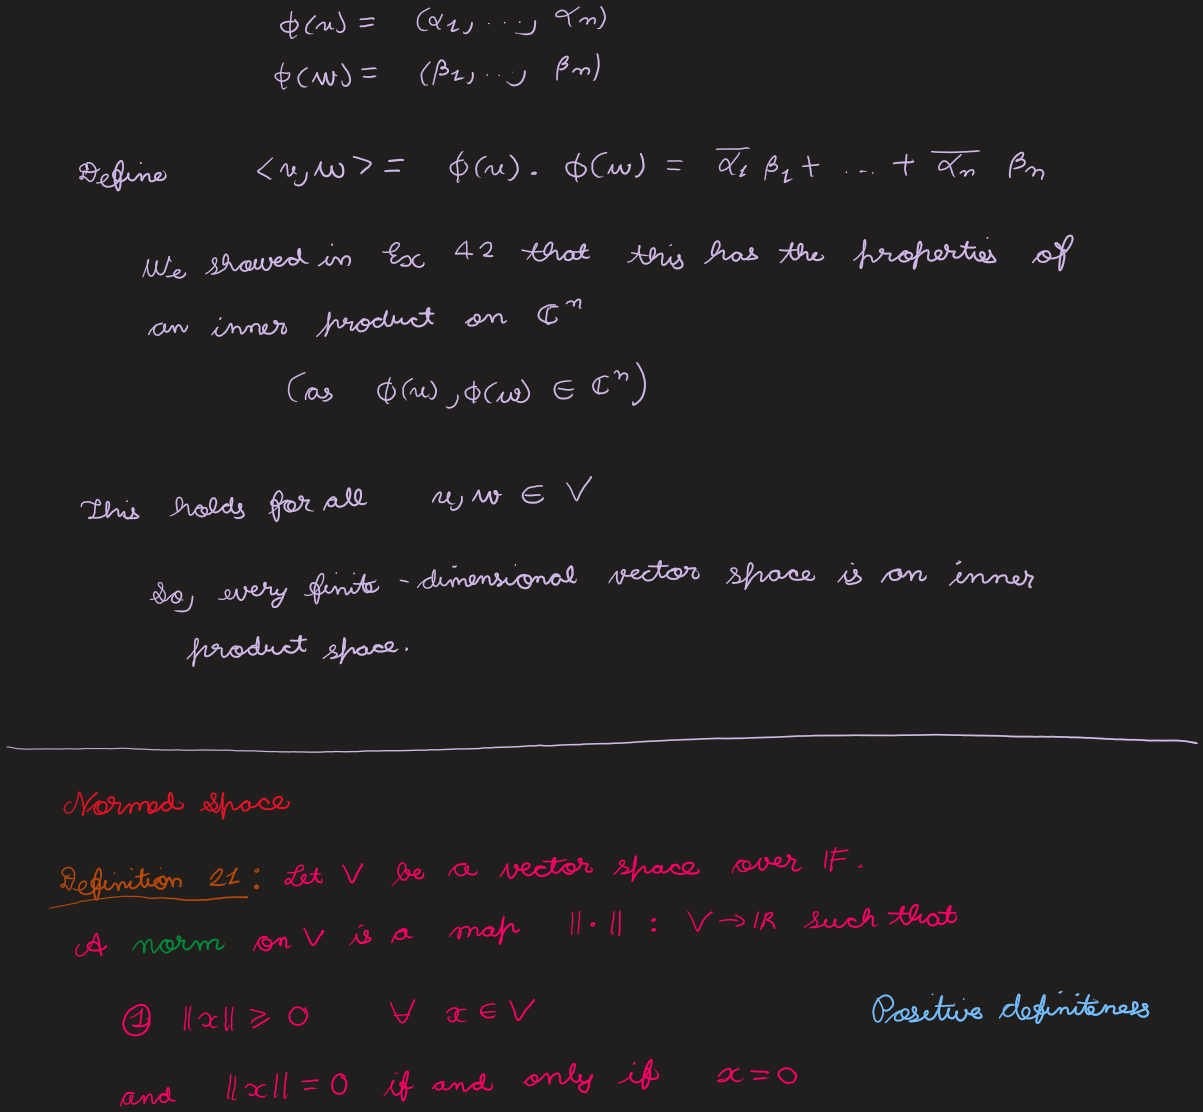 ϕ(v) = (α₁, ..., αₙ)
ϕ(w) = (β₁, ..., βₙ)
Define <v, w> = ϕ(v) . ϕ(w) = α̅₁ β₁ + ... + α̅ₙ βₙ
We showed in Ex 42 that this has the properties of
an inner product on ℂⁿ
(as ϕ(v), ϕ(w) ∈ ℂⁿ)
This holds for all v, w ∈ V
So, every finite-dimensional vector space is an inner
product space.
Normed space
Definition 21: Let V be a vector space over 𝔽.
A norm on V is a map ||·|| : V → ℝ such that
① ||x|| ⩾ 0 ∀ x ∈ V Positive definiteness
and ||x|| = 0 if and only if x = 0